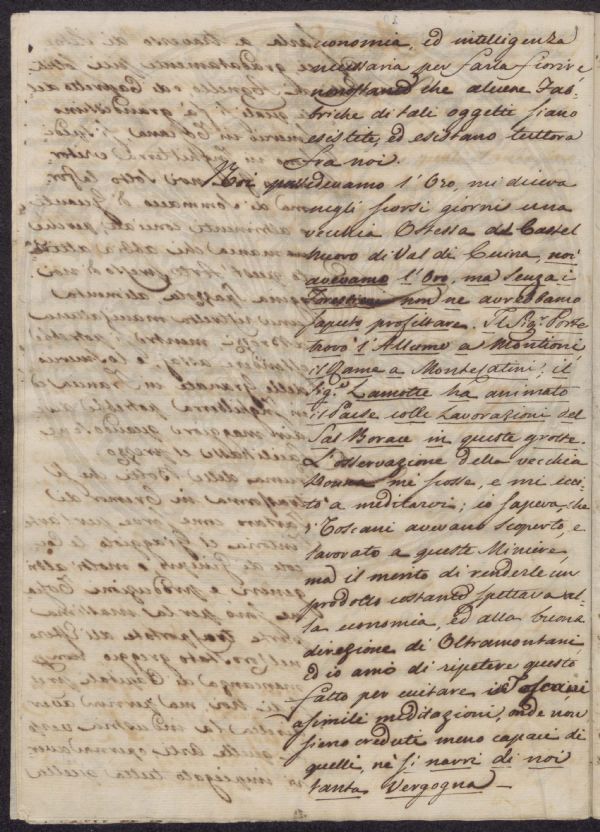 economia, ed intelligenza
necessaria per farla fiorire
nonostante che alcune Fab-
briche di tali oggetti siano
esistete, ed esistano tuttora
fra noi.
Noi possedevamo l'Oro, mi diceva
negli scorsi giorni una
vecchia Ostessa del Castel
nuovo di Val di Cecina, noi
avevamo l'Oro, ma senza i
Forestieri non ne avrebbamo
saputo profittare. Il Sig.r Porte
trovò l'Allume a Montioni,
il Rame a Montecatini; il
Sig.e Lamotte ha animato
il Paese colle Lavorazioni del
Sal Borace in queste grotte.
L'osservazione della vecchia
Donna mi scosse, e mi ecci-
tò a meditarvi; io sapeva che
i Toscani avevano scoperto, e
lavorato a queste Miniere,
ma il merito di renderle un
prodotto costante spettava al-
la economia, ed alla buona
direzione di Oltramontani,
ed io amo di ripetere questo
fatto per eccitare i Toscani
a simili meditazioni, onde non
sieno creduti meno capaci di
quelli, nè si narri di noi
tanta Vergogna